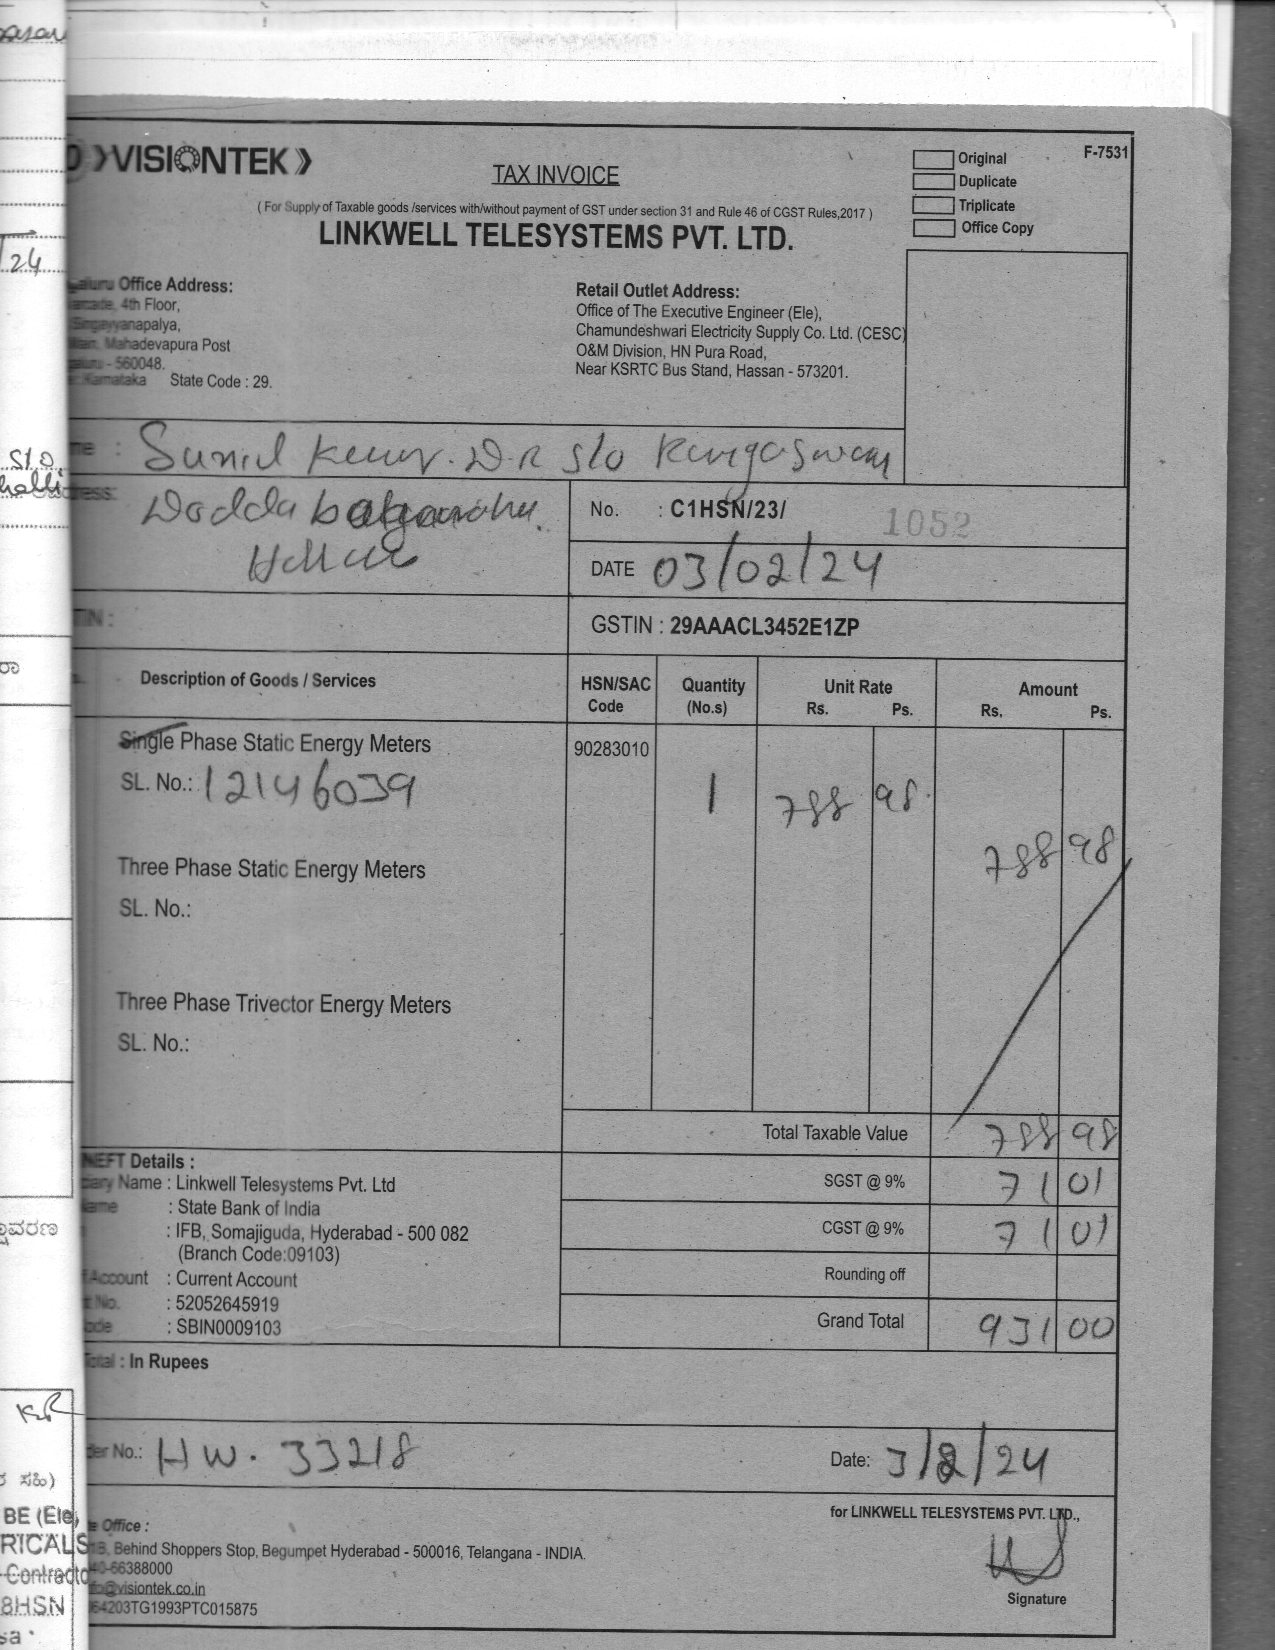 24
S/o
halli
VISIONTEK
F-7531
TAX INVOICE
Original
Duplicate
Triplicate
Office Copy
( For Supply of Taxable goods /services with/without payment of GST under section 31 and Rule 46 of CGST Rules,2017 )
LINKWELL TELESYSTEMS PVT. LTD.
Office Address:
4th Floor,
Mahadevapura Post
- 560048.
Karnataka State Code : 29.
Retail Outlet Address:
Office of The Executive Engineer (Ele),
Chamundeshwari Electricity Supply Co. Ltd. (CESC)
O&M Division, HN Pura Road,
Near KSRTC Bus Stand, Hassan - 573201.
: Sunil D.R S/o
Dodda
No. : C1HSN/23/ 1052
DATE 03/02/24
GSTIN : 29AAACL3452E1ZP
Description of Goods / Services HSN/SAC Code Quantity (No.s) Unit Rate Rs. Ps. Amount Rs. Ps.
Single Phase Static Energy Meters 90283010
SL. No.: 12146039 1 788 98 788 98
Three Phase Static Energy Meters
SL. No.:
Three Phase Trivector Energy Meters
SL. No.:
Total Taxable Value 788 98
SGST @ 9% 71 01
CGST @ 9% 71 01
Rounding off
Grand Total 931 00
NEFT Details :
Name : Linkwell Telesystems Pvt. Ltd
: State Bank of India
: IFB, Somajiguda, Hyderabad - 500 082
(Branch Code:09103)
Account : Current Account
No. : 52052645919
: SBIN0009103
Total : In Rupees
No.: HW. 33218
Date: 3/2/24
for LINKWELL TELESYSTEMS PVT. LTD.,
Signature
Office :
Behind Shoppers Stop, Begumpet Hyderabad - 500016, Telangana - INDIA.
66388000
@visiontek.co.in
64203TG1993PTC015875
BE (Ele)
RICALS
Contractor
8HSN